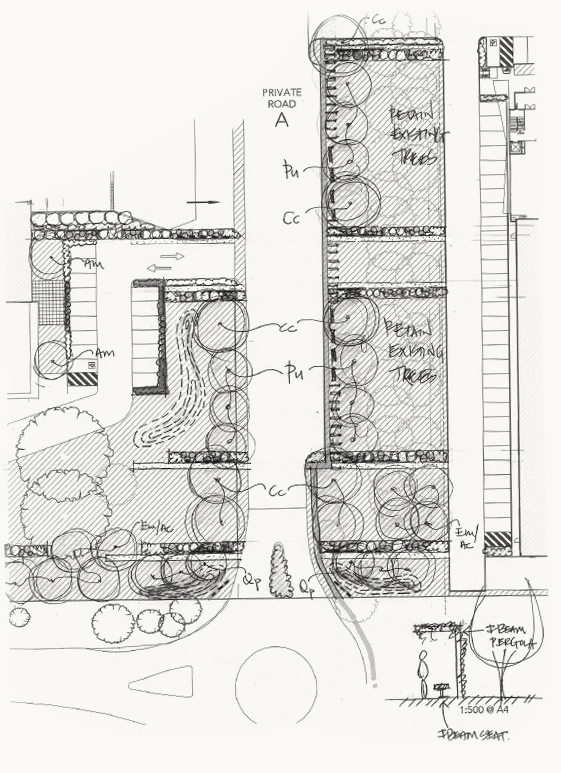 Cc
PRIVATE
ROAD
A
RETAIN
EXISTING
TREES
Pu
Cc
Am
Am
Cc
RETAIN
EXISTING
TREES
Pu
Cc
Em/Ac
Em/
Ac
Qp
Qp
I BEAM
PERGOLA
1:500 @ A4
I BEAM SEAT.